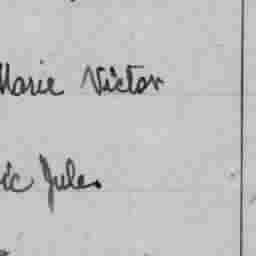 Marie Victor
ic Jules